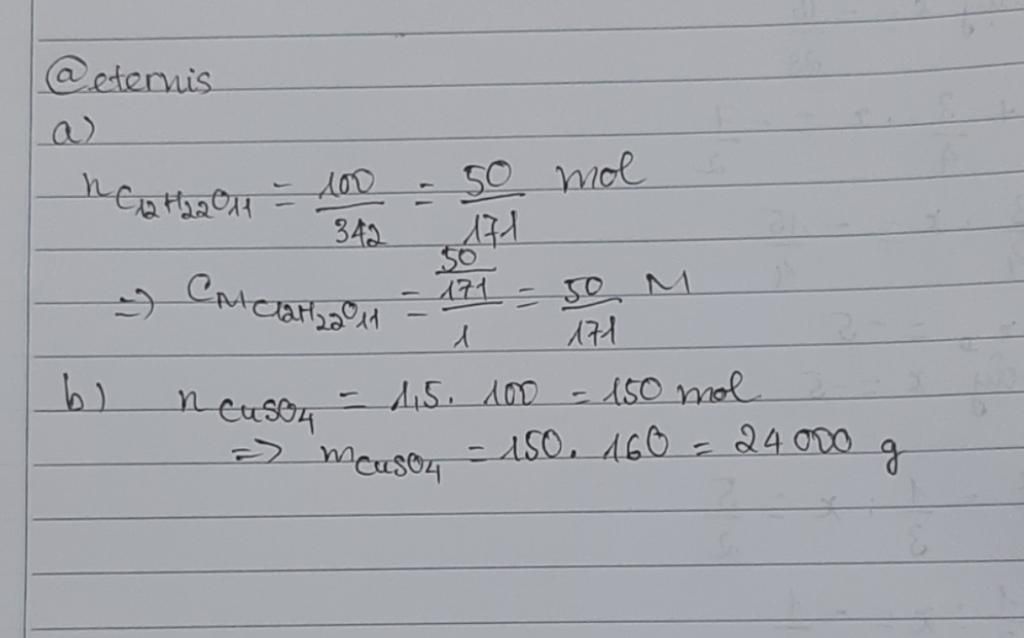 @eternis
a)
n C12H22O11 = 100/342 = 50/171 mol
=> CM C12H22O11 = (50/171)/1 = 50/171 M
b) n CuSO4 = 1,5. 100 = 150 mol
=> m CuSO4 = 150. 160 = 24 000 g